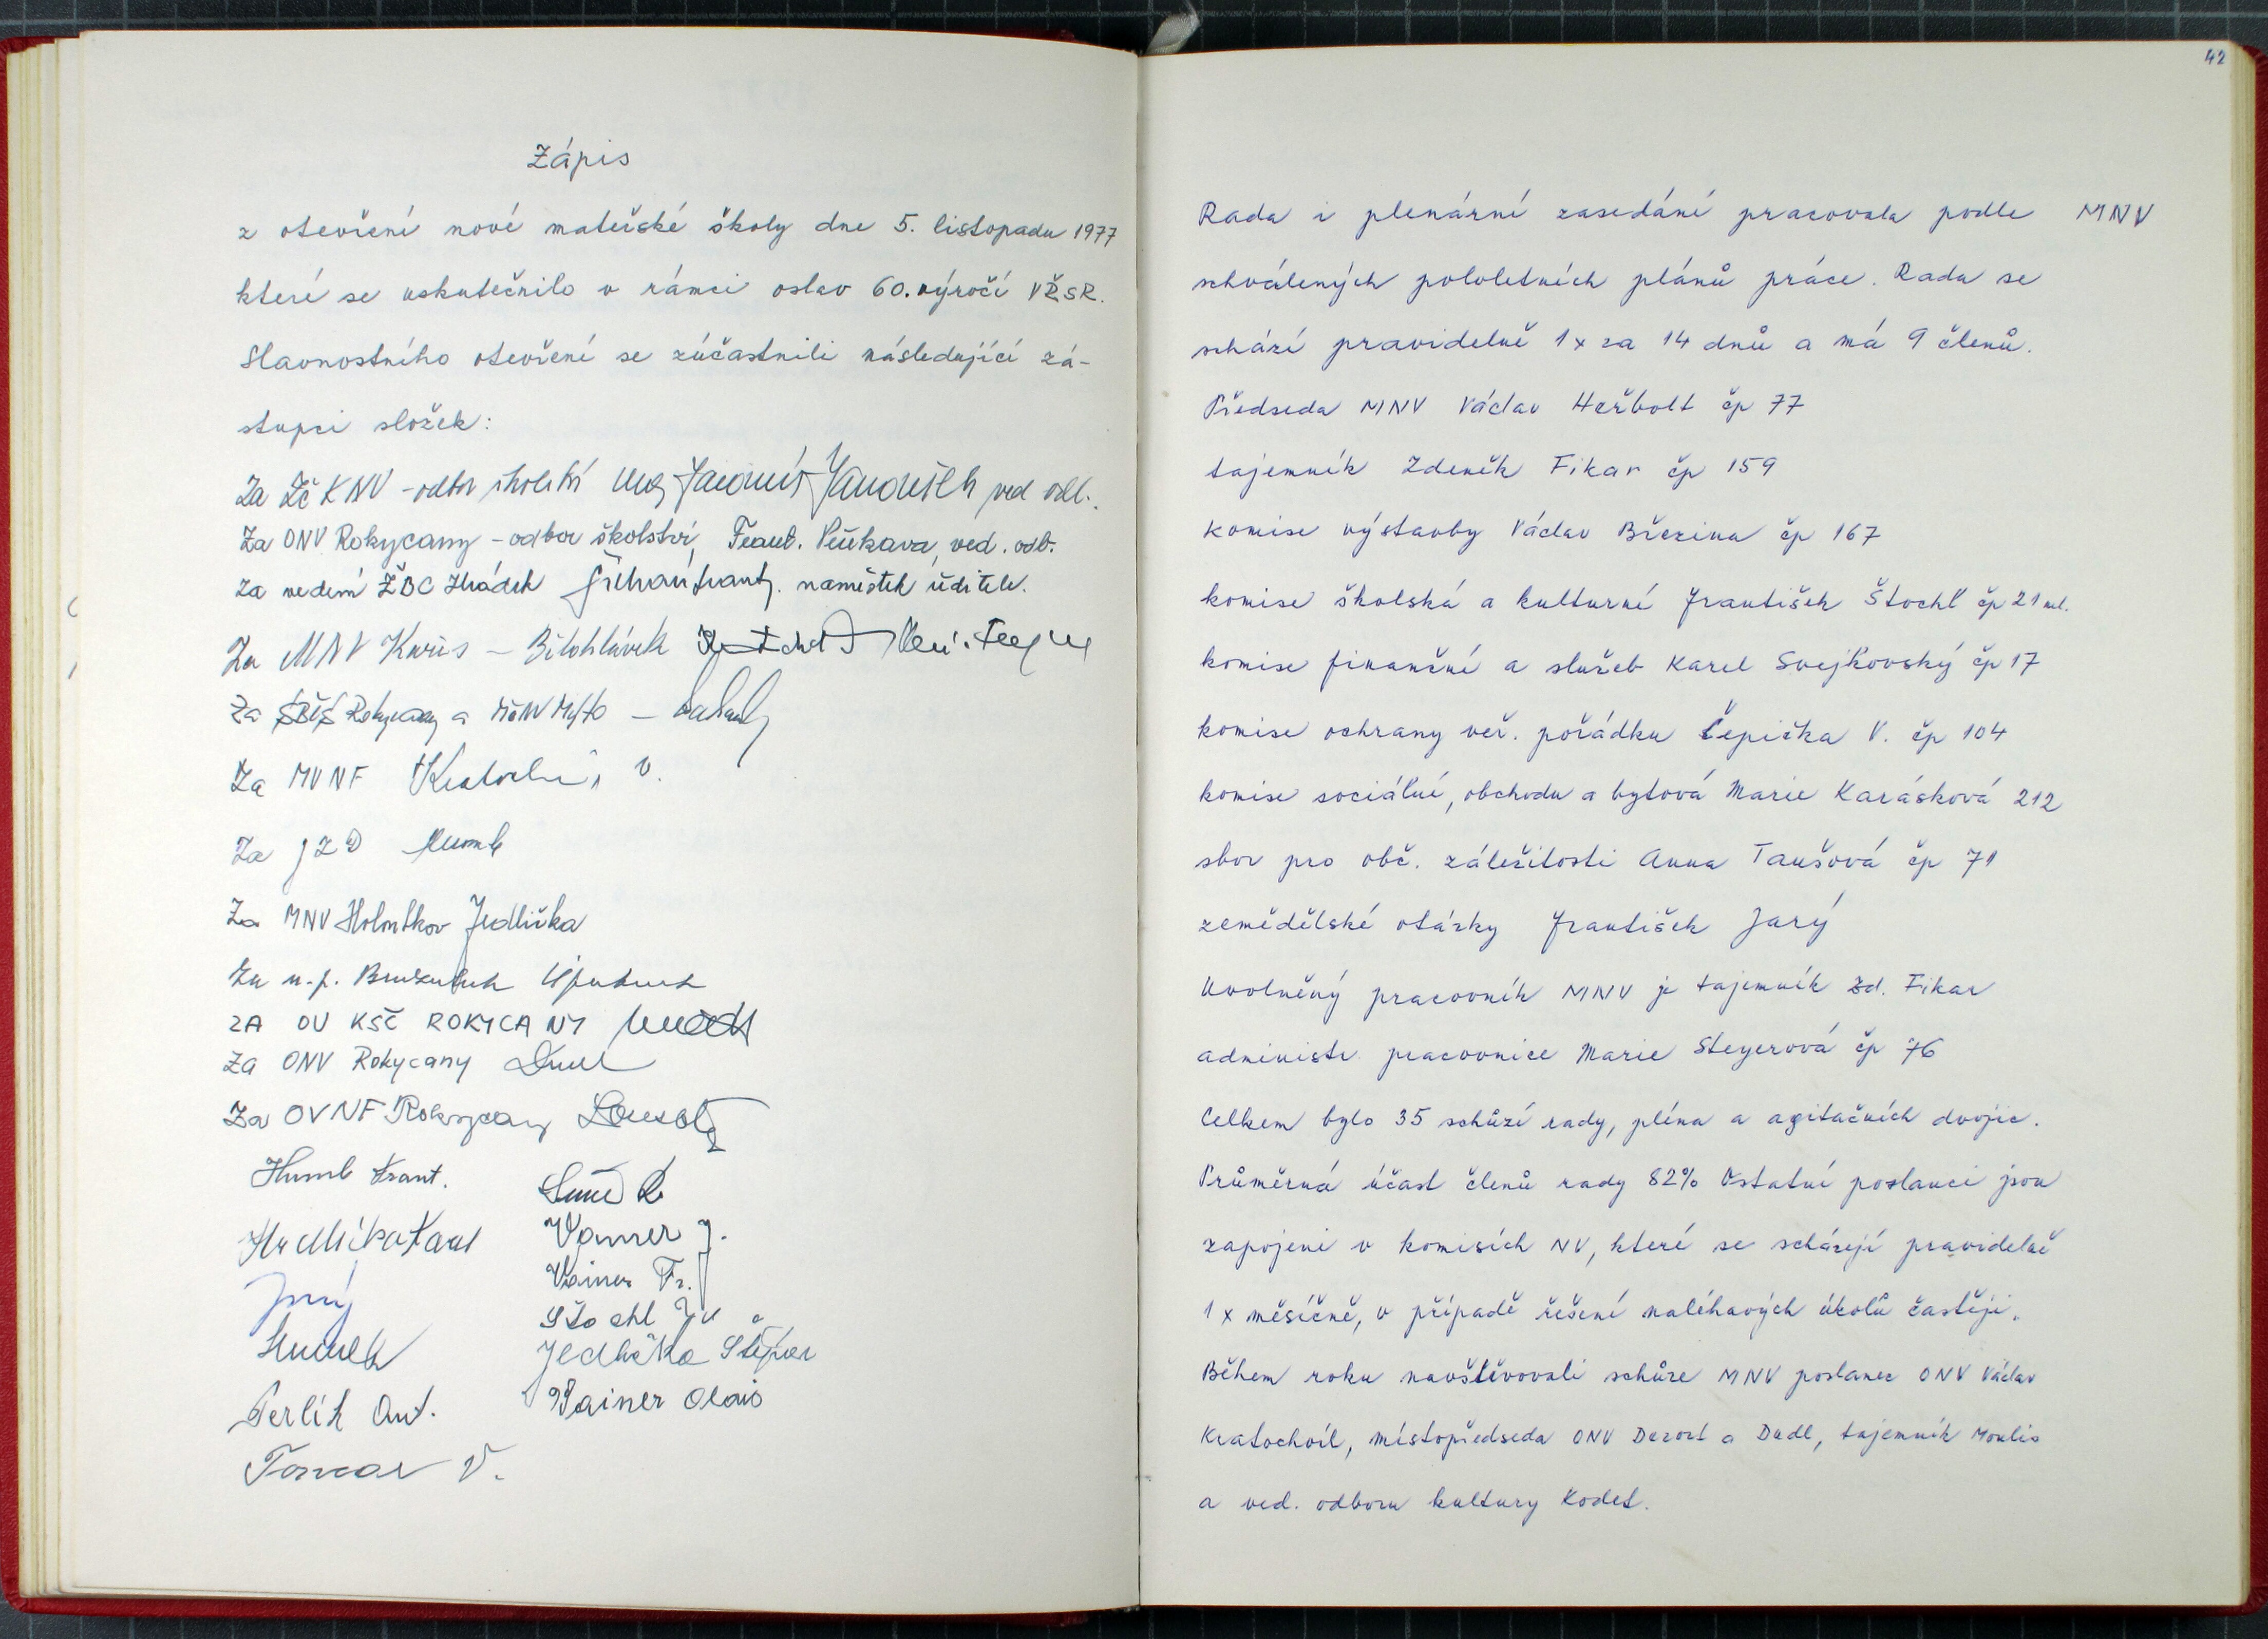 Zápis
z otevření nové mateřské školy dne 5. listopadu 1977
které se uskutečnilo v rámci oslav 60. výročí VŘSR.
Slavnostního otevření se zúčastnili následující zá-
stupci složek:
Za Zč KNV - odbor školství Ing ved odb.
Za ONV Rokycany - odbor školství, Frant. ved. odb.
Za vedení ŽBC Hrádek náměstek ředitele.
Za MNV - Bělohlávek
Za Rokycany a Mýto -
Za MVNF V.
Za JZD Huml
Za MNV Holoubkov Jedlička
Za n.p.
ZA OV KSČ ROKYCANY
Za ONV Rokycany Dudl
Za OVNF Rokycany
Huml Frant.
Hrdlička Karel
Jarý
Terlík Ant.
V.
Vainer J.
Vainer Fr.
Štochl
Jedlička Štěpán
Vainer Alois
42
MNV
Rada i plenární zasedání pracovala podle
schválených pololetních plánů práce. Rada se
schází pravidelně 1x za 14 dnů a má 9 členů.
Předseda MNV Václav Heřbolt čp 77
tajemník Zdeněk Fikar čp 159
komise výstavby Václav Březina čp 167
komise školská a kulturní František Štochl čp 21 ml.
komise finanční a služeb Karel Svejkovský čp 17
komise ochrany veř. pořádku Čepička V. čp 104
komise sociální, obchodu a bytová Marie Karásková 212
sbor pro obč. záležitosti Anna Taušová čp 71
zemědělské otázky František Jarý
Uvolněný pracovník MNV je tajemník Zd. Fikar
administr. pracovnice Marie Steyerová čp 76
Celkem bylo 35 schůzí rady, pléna a agitačních dvojic.
Průměrná účast členů rady 82% Ostatní poslanci jsou
zapojeni v komisích NV, které se scházejí pravidelně
1 x měsíčně, v případě řešení naléhavých úkolů častěji.
Během roku navštěvovali schůze MNV poslanec ONV Václav
Kratochvíl, místopředseda ONV Dezort a Dudl, tajemník Moulis
a ved. odboru kultury Kodet.